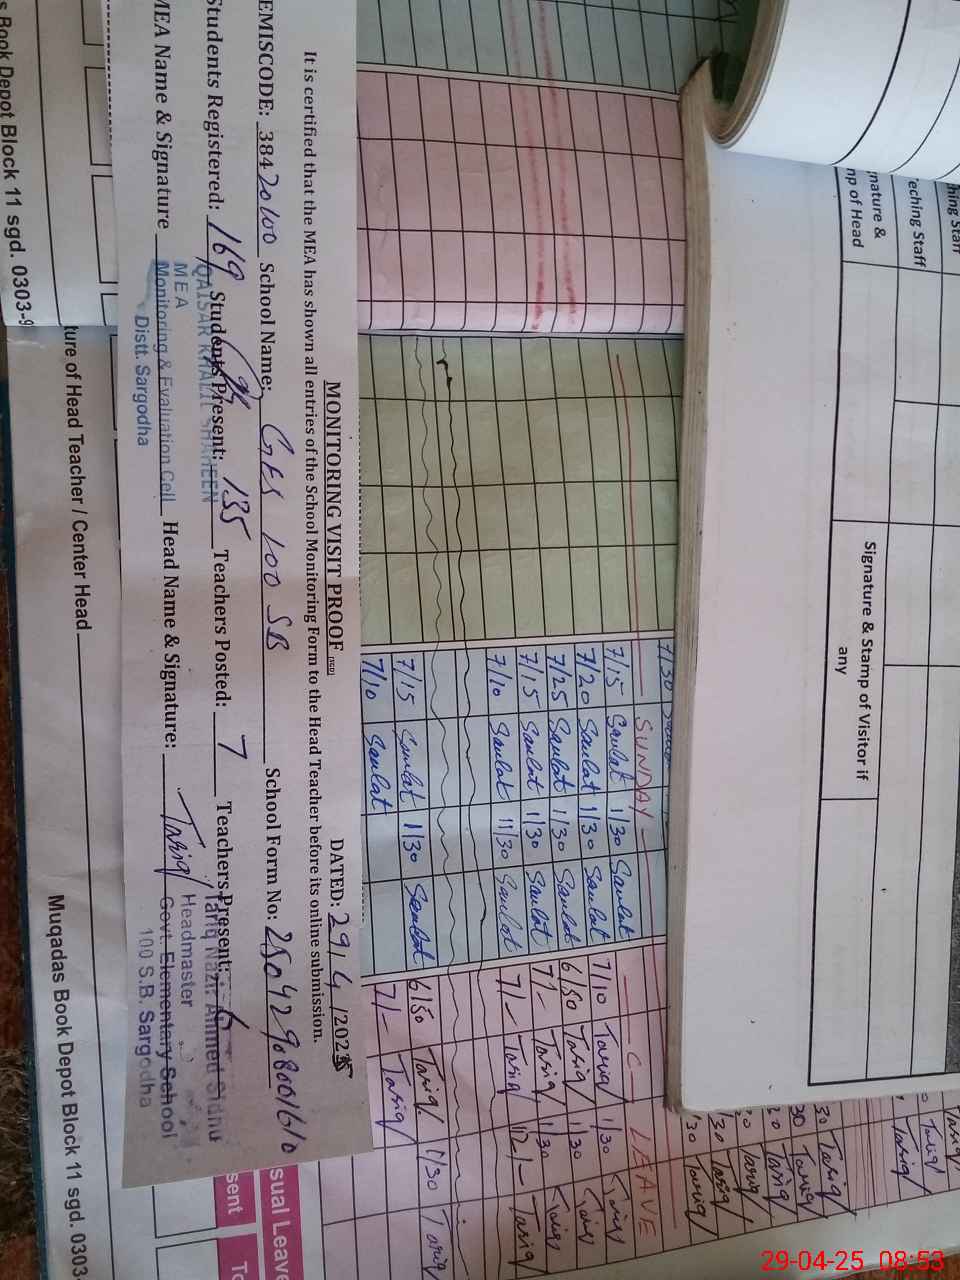 MONITORING VISIT PROOF
DATED: 29/4/2025
It is certified that the MEA has shown all entries of the School Monitoring Form to the Head Teacher before its online submission.
EMISCODE: 38420100 School Name: GES 100 SB School Form No:
Students Registered: 169 Students Present: 135 Teachers Posted: 7 Teachers Present: 6
MEA Name & Signature Head Name & Signature: Tariq
QAISAR KHALIL SHAHEEN
MEA
Monitoring & Evaluation Cell
Distt. Sargodha
Tariq Nazir Ahmed Sidhu
Headmaster
Govt. Elementary School
100 S.B. Sargodha
SUNDAY
C LEAVE
7/15 Saulat 1/30 Saulat 7/10 Tariq 1/30
7/20 Saulat 1/30 Saulat 6/50 Tariq 1/30
7/25 Saulat 1/30 Saulat 7/- Tariq 1/30
7/15 Saulat 1/30 Saulat 7/- Tariq 12/- Tariq
7/10 Saulat 11/30 Saulat
7/15 Saulat 1/30 Saulat 6/50 Tariq 1/30 Tariq
7/10 Saulat 7/- Tariq
Teching Staff
Signature & Stamp of Visitor if any
ture of Head Teacher / Center Head
Muqadas Book Depot Block 11 sgd. 0303-
s Book Depot Block 11 sgd. 0303-9
sual Leave
sent
29-04-25 08:53